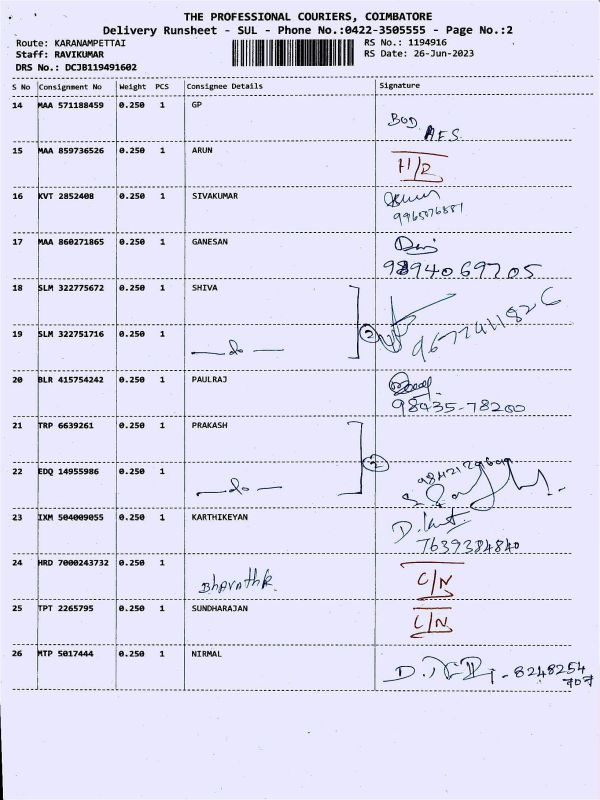 THE PROFESSIONAL COURIERS, COIMBATORE
Delivery Runsheet - SUL - Phone No.:0422-3505555 - Page No.:2
Route: KARANAMPETTAI RS No.: 1194916
Staff: RAVIKUMAR RS Date: 26-Jun-2023
DRS No.: DCJB119491602
S No Consignment No Weight PCS Consignee Details Signature
14 MAA 571188459 0.250 1 GP
BOD
AES
15 MAA 859736526 0.250 1 ARUN
H/D
16 KVT 2852408 0.250 1 SIVAKUMAR
17 MAA 860271865 0.250 1 GANESAN
9894069705
18 SLM 322775672 0.250 1 SHIVA
19 SLM 322751716 0.250 1
—do— 2 9677411826
20 BLR 415754242 0.250 1 PAULRAJ
98435-78200
21 TRP 6639261 0.250 1 PRAKASH
2
22 EDQ 14955986 0.250 1
—do—
23 IXM 504009055 0.250 1 KARTHIKEYAN
7639384840
24 HRD 7000243732 0.250 1
Bharathk C/N
25 TPT 2265795 0.250 1 SUNDHARAJAN
C/N
26 MTP 5017444 0.250 1 NIRMAL
8248254